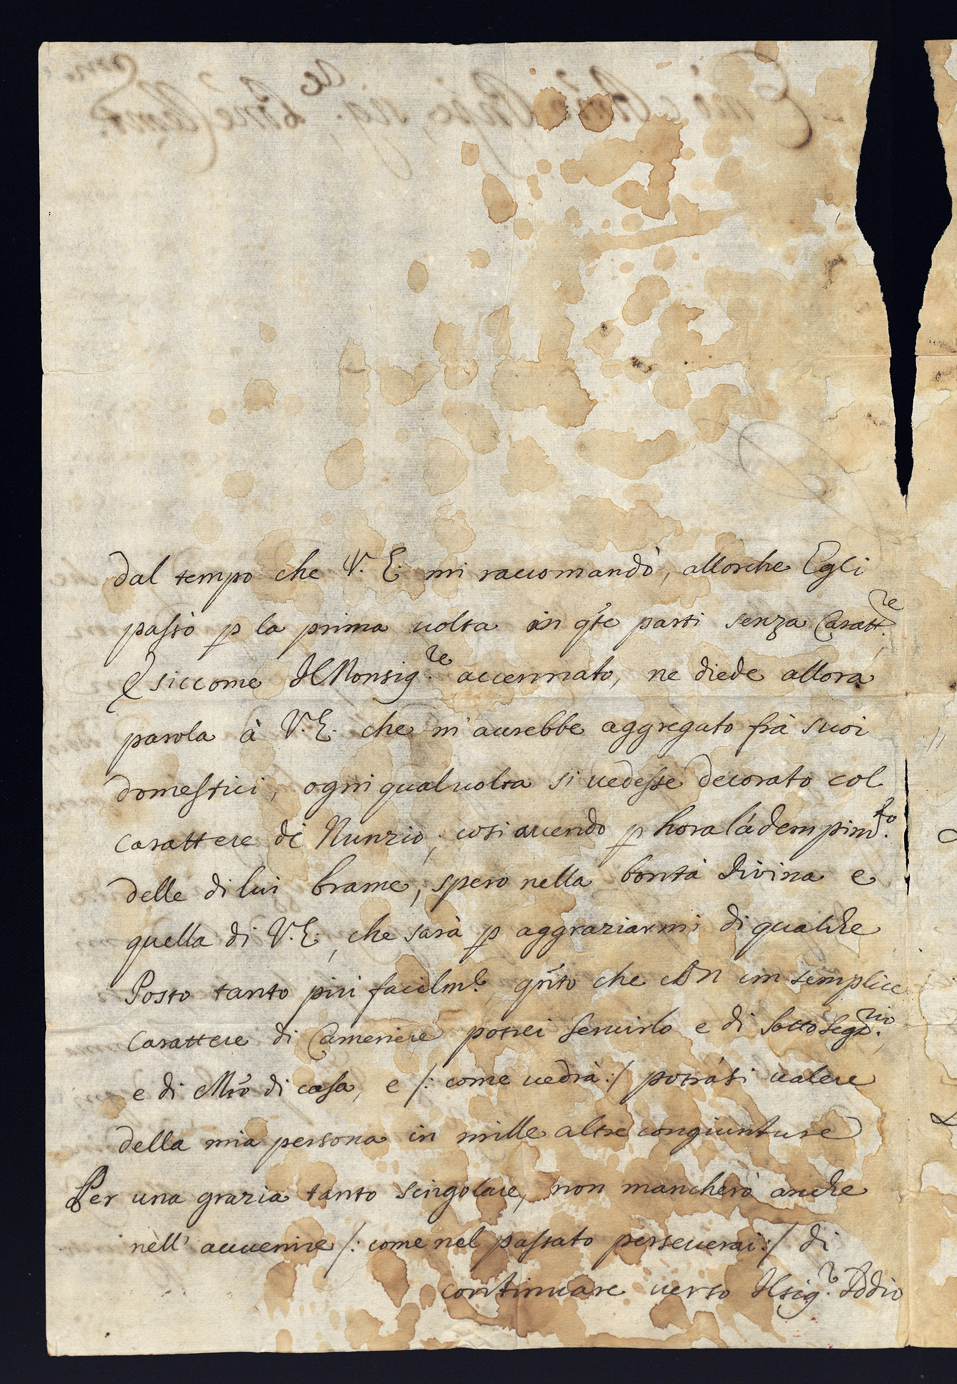 dal tempo che V. E. mi raccomandò, allorche Egli
passò p la prima uolta in qte parti senza Caratt.re
E siccome Il Monsig.re accennato, ne diede allora
parola à V. E. che m'aurebbe aggregato frà suoi
domestici, ogni qualuolta si uedesse decorato col
carattere di Nunzio, cosi auendo p hora l'ádempim.to
delle di lui brame, spero nella bontà Divina e
quella di V. E. che sarà p aggraziarmi di qualche
Posto tanto piu facilm.e, qto che in un semplice
Carattere di Cameriere potrei seruirlo e di sotto Seg.rio,
e di Mro di casa, e /: come uedrà :/ potrà si ualere
della mia persona in mille altre congiunture
Per una grazia tanto singolare, non mancherò anche
nell' auuenire /: come nel passato perseuerai :/ di
continuare uerso Il sig.re Iddio